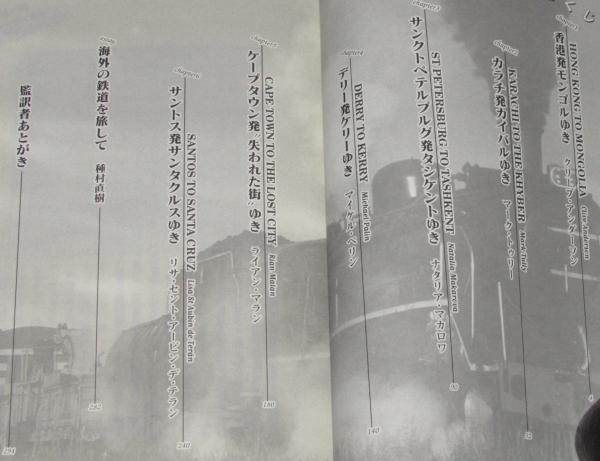 じ
chapter1
香港発モンゴルゆき クリーブ・アンダーソン
HONG KONG TO MONGOLIA Clive Anderson
4
chapter2
カラチ発カイバルゆき マーク・トゥリー
KARACHI TO THE KHYBER Mark Tully
32
chapter3
サンクトペテルブルグ発タシケントゆき ナタリア・マカロワ
ST PETERSBURG TO TASHKENT Natalia Makarova
chapter4
デリー発ケリーゆき マイケル・ペリン
DERRY TO KERRY Michael Palin
140
chapter5
ケープタウン発"失われた街"ゆき ライアン・マラン
CAPE TOWN TO THE LOST CITY Rian Malan
180
chapter6
サントス発サンタクルスゆき リサ・セント・アービン・デ・テラン
SANTOS TO SANTA CRUZ Lisa St Aubin de Terán
240
essay
海外の鉄道を旅して 種村直樹
282
監訳者あとがき
294